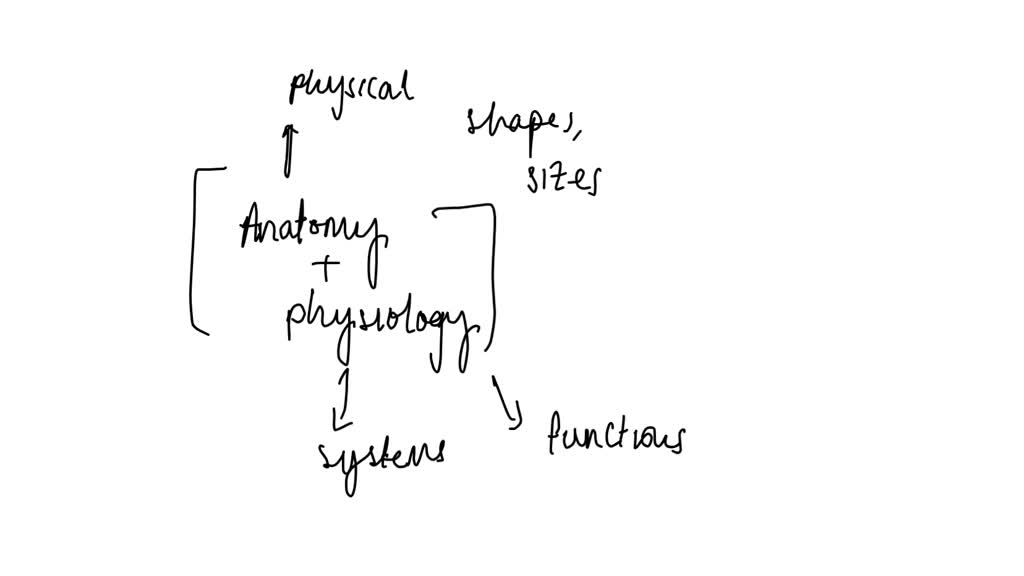 physical
shapes,
sizes
Anatomy
+
physiology
systems
functions